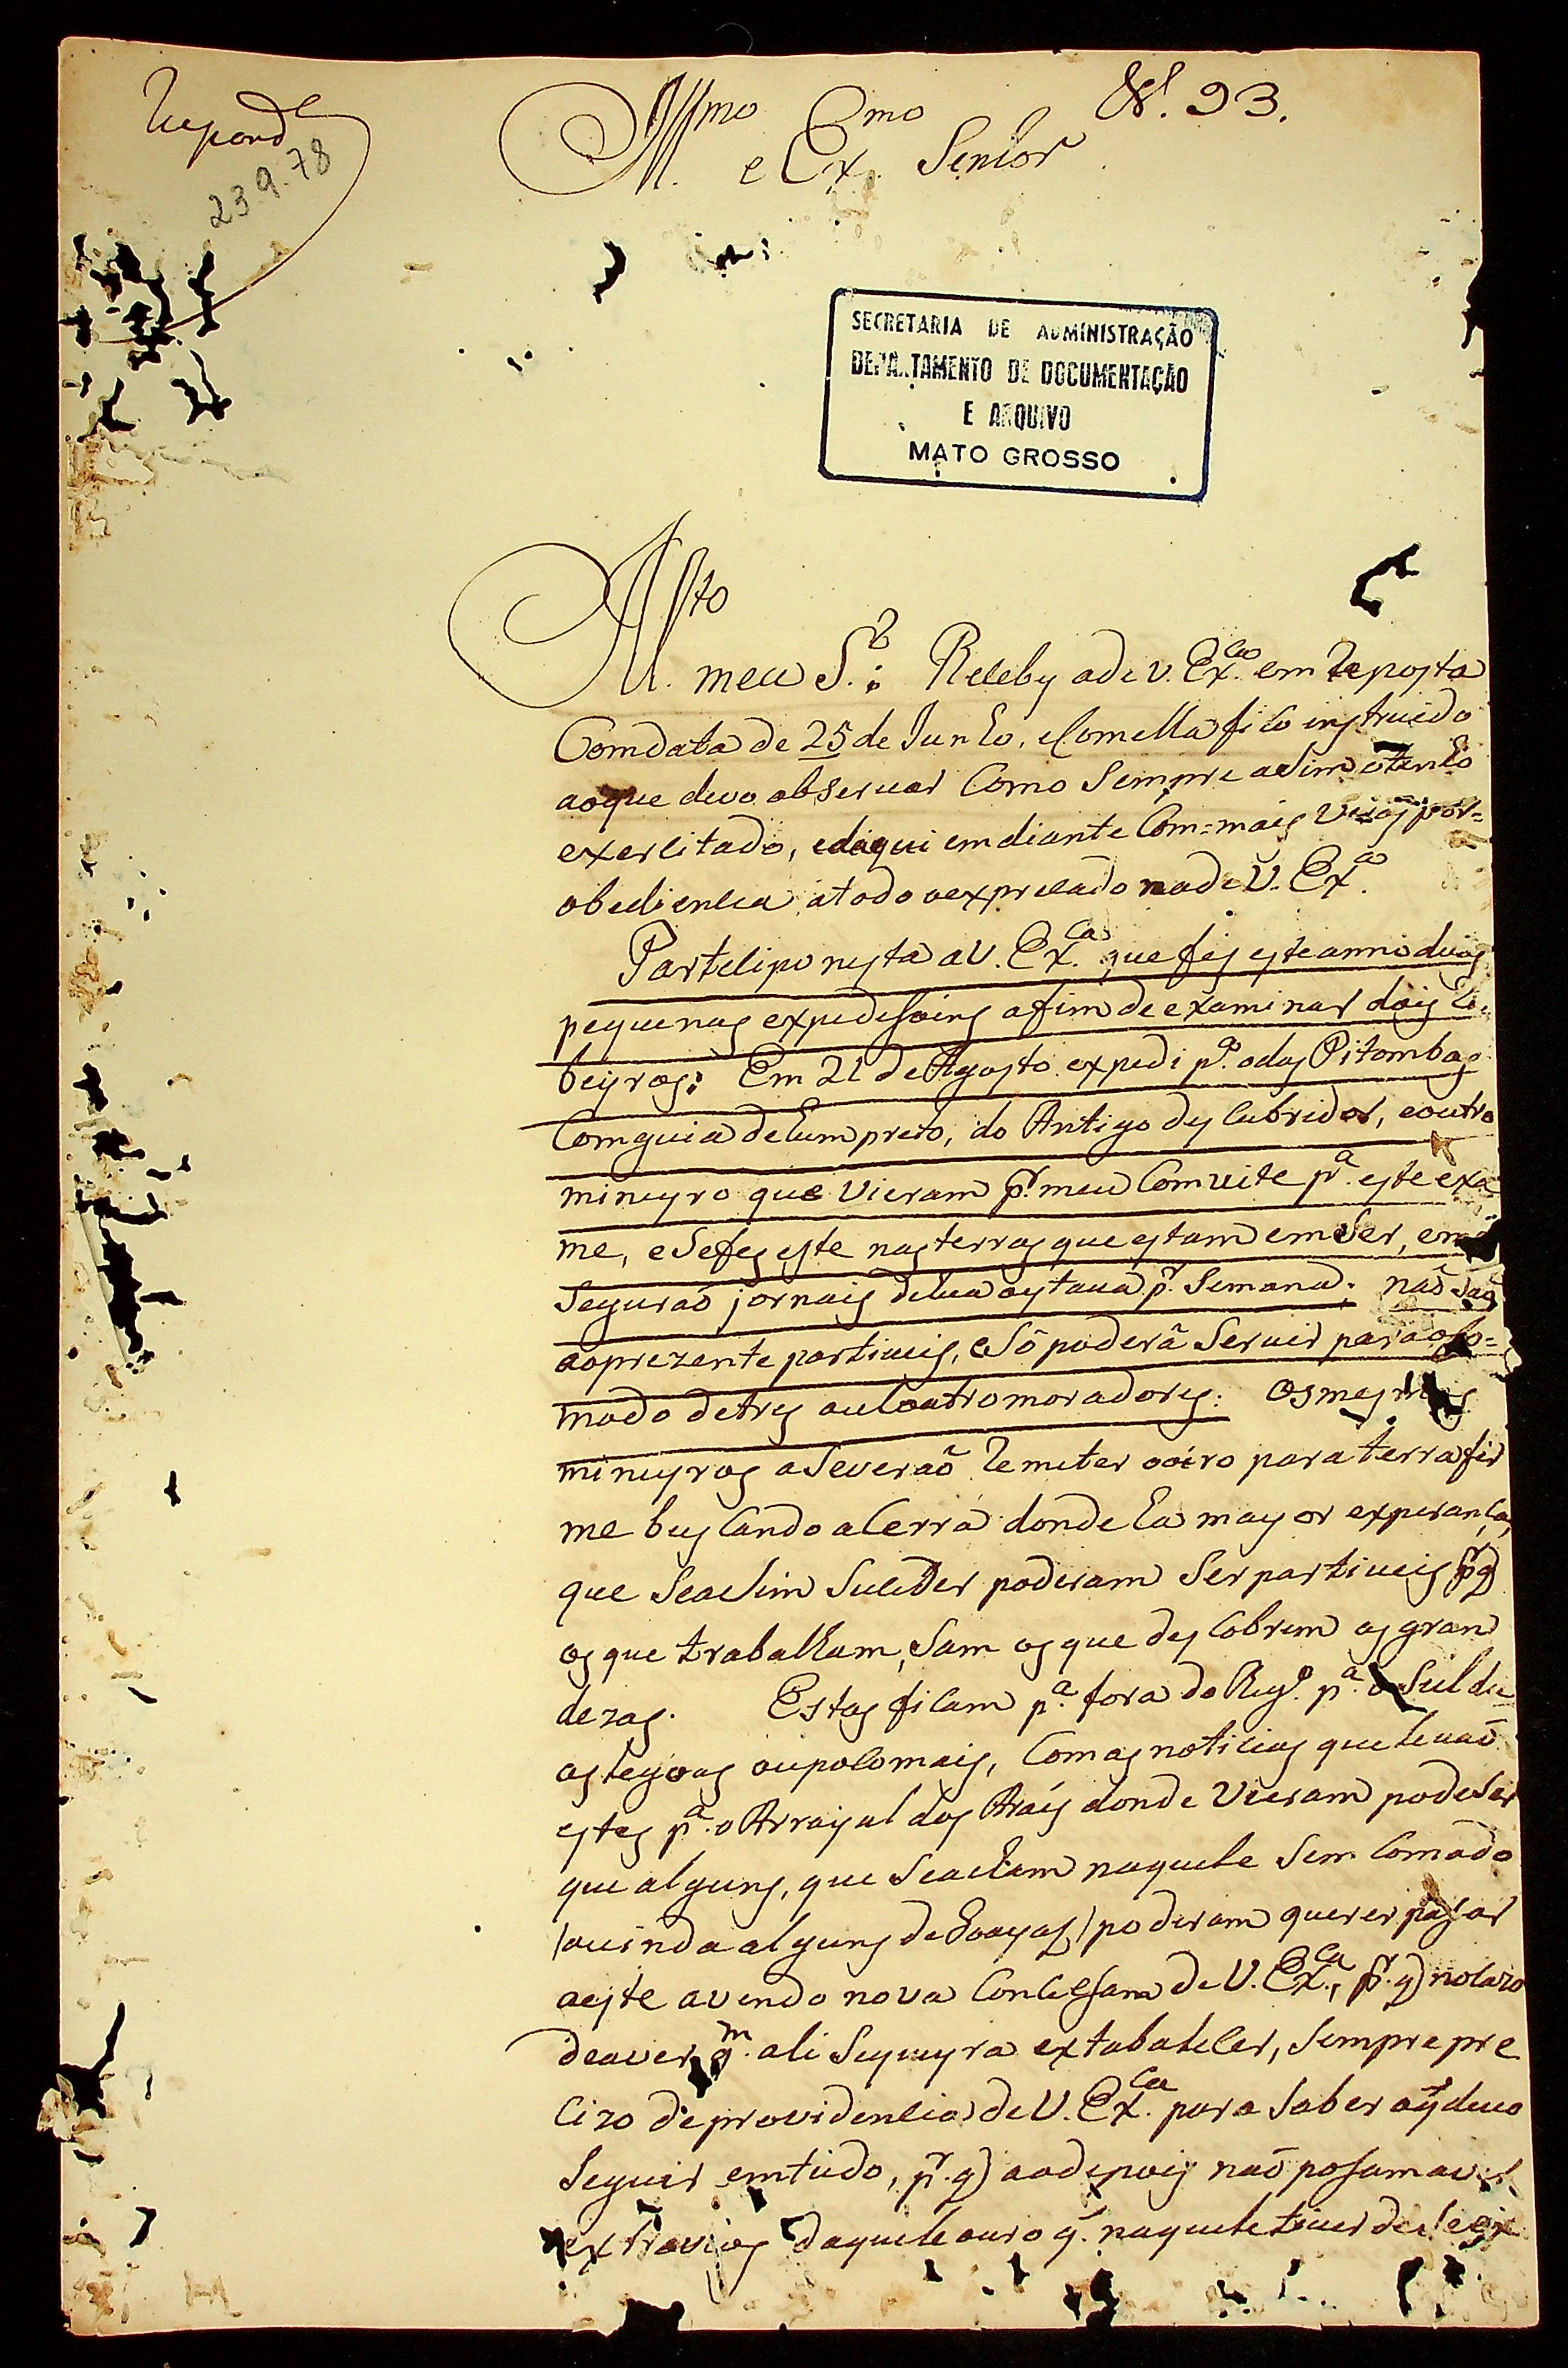 Respond.e
N.º 93.
Ill.mo e Ex.mo Senhor
23.9.78
SECRETARIA DE ADMINISTRAÇÃO
DEPARTAMENTO DE DOCUMENTAÇÃO
E ARQUIVO
MATO GROSSO
M.to
meu S.r: Receby a de V. Ex.ca em reposta
Com data de 25 de Junho, e Com ella fico instruido
ao que devo observar Como Sempre asim o tenho
exercitado, e daqui em diante Com mais por=
obediencia a todo o expresado na de V. Ex.ca
Partecipo nesta a V. Ex.ca que fis este anno duas
pequenas expedisoins a fim de examinar dois Ri=
beyros: Em 21 de Agosto expedi p.a o das Pitombas
Com guia de hum preto, do Antigo descubridor, e outro
mineyro que vieram p.r meu Comvite p.a este exa
me, e Se fes este nas terras que estam em Ser, e
Segurão jornais de hua oytava p.r Semana; não São
ao prezente partiveis, e Só poderã Servir para o Co=
modo de tres ou coatro moradores: Os mesmos
mineyros aSeverão remeter o oiro para terra fir
me buscando a Cerra donde ha mayor experança,
que Se aSim Suceder poderam Ser partiveis p.r q
os que trabalham, Sam os que descobrem as gran
dezas. Estas ficam p.a fora do Reg.o p.a o Sul de
as legoas ou polo mais, Com as noticias que levaõ
estes p.a o Arrayal dos Aráes donde vieram pode Ser
que alguns, que Se acham naquele Sem Comodo
(ainda alguns de Goayas) poderam querer pasar
a este avendo nova Concesam de V. Ex.ca, p.r q no cazo
de aver q.m ali Se queyra extabalecer, Sempre pre
cizo de providencia de V. Ex.ca para Saber o q devo
Seguir em tudo, p.r q ao depois não posam aver
extravios daquele ouro q. naquele tiver de Se